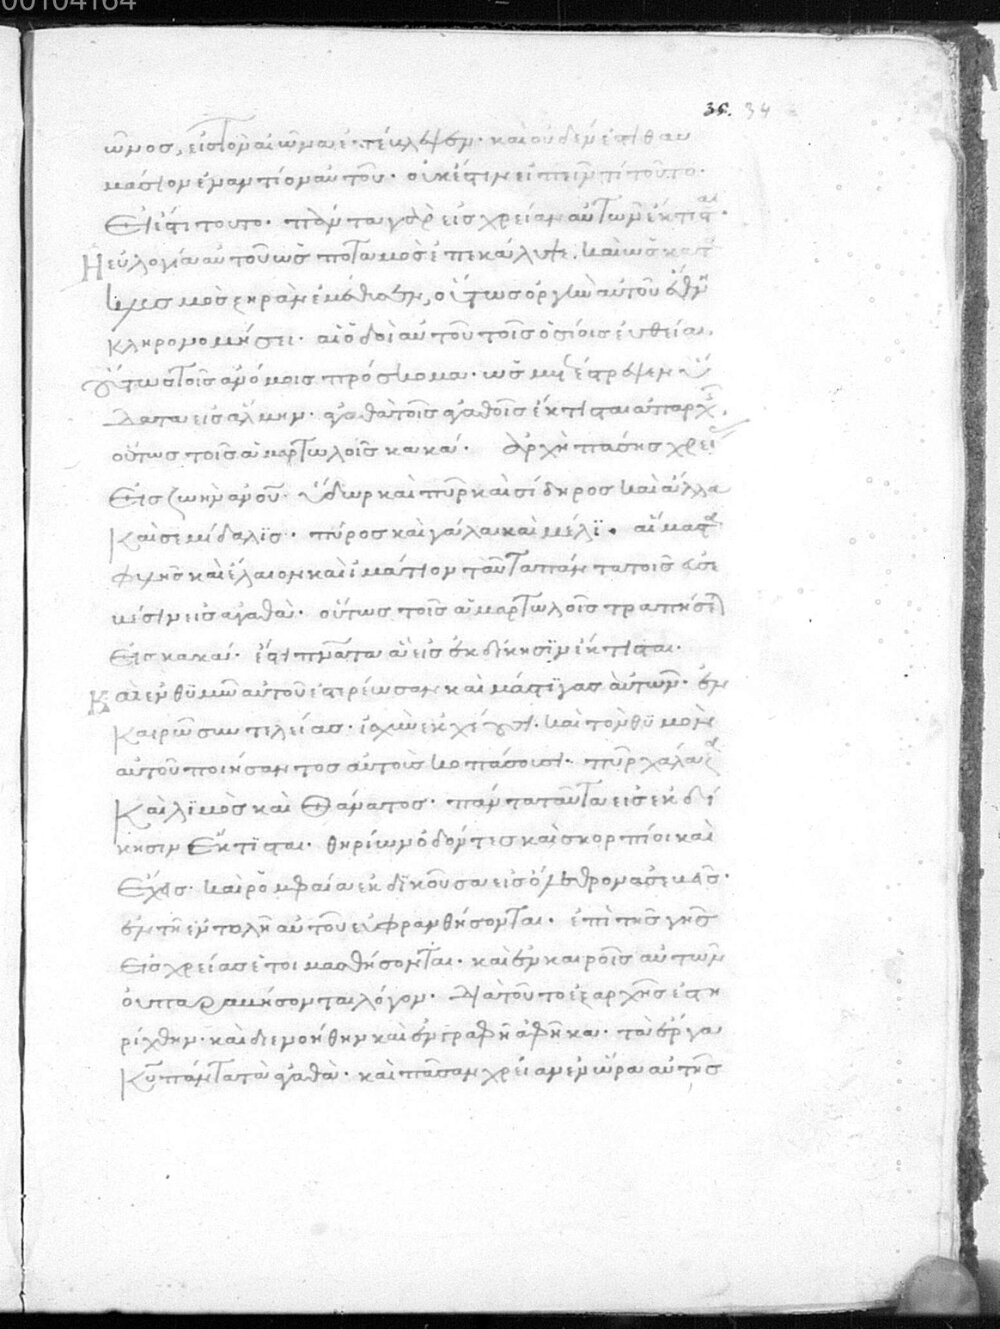 00104164
35. 34
ῶνος, εἰς τὸν αἰῶνα ἐπέβλεψεν· καὶ οὐδέν ἐστι θαυ
μάσιον ἐναντίον αὐτοῦ· οὐκ ἔστιν εἰπεῖν τί τοῦτο·
εἰς τί τοῦτο· πάντα γὰρ εἰς χρείαν αὐτῶν ἔκτισται·
Ἡ εὐλογία αὐτοῦ ὡς ποταμὸς ἐπεκάλυψε, καὶ ὡς κατα
κλυσμὸς ξηρὰν ἐμέθυσεν, οὕτως ὀργὴν αὐτοῦ ἔθνη
κληρονομήσει· αἱ ὁδοὶ αὐτοῦ τοῖς ὁσίοις εὐθεῖαι,
οὕτως τοῖς ἀνόμοις πρόσκομμα· ὡς μετέστρεψεν ὕ
δατα εἰς ἅλμην· ἀγαθὰ τοῖς ἀγαθοῖς ἔκτισται ἀπαρχῆς,
οὕτως τοῖς ἁμαρτωλοῖς κακά· Ἀρχὴ πάσης χρείας
εἰς ζωὴν ἀνου· ὕδωρ καὶ πῦρ καὶ σίδηρος καὶ ἅλλα
καὶ σεμίδαλϊς· πύρος καὶ γάλα καὶ μέλϊ· αἷμα στα
φυλῆς καὶ ἔλαιον καὶ ἱμάτιον ταῦτα πάντα τοῖς εὐσε
βέσιν εἰς ἀγαθὰ· οὕτως τοῖς ἁμαρτωλοῖς τραπήσεται
εἰς κακά· ἔστι πνατα ἃ εἰς ἐκδίκησϊν ἔκτισται·
Καὶ ἐν θϋμῶ αὐτοῦ ἐστερέωσαν καὶ μάστϊγας αὐτῶν· ἐν
καιρῶ συντελείας· ἰσχὺν ἐκχέουσι· καὶ τὸν θϋμὸν
αὐτοῦ ποιήσαντος αὐτοὺς κοπάσουσι· πῦρ χάλαζα
καὶ λϊμὸς καὶ θάνατος· πάντα ταῦτα εἰς ἐκδί
κησιν ἔκτϊσται· θηρίων ὀδόντες καὶ σκορπίοι καὶ
ἔχεις· καὶ ῥομφαία ἐκδϊκοῦσα εἰς ὄλεθρον ἀσεβεῖς·
ἐν τῆ ἐντολῆ αὐτοῦ εὐφρανθήσονται· ἐπὶ τῆς γῆς
εἰς χρείας ἑτοιμασθήσονται· καὶ ἐν καιροῖς αὐτῶν
οὐ παραβήσονται λόγον· διὰ τοῦτο ἐξ ἀρχῆς ἐστη
ρίχθην· καὶ διενοήθην καὶ ἐν γραφῆ ἀφῆκα· τὰ ἔργα
κυ πάντα τὰ ἀγαθὰ· καὶ πᾶσαν χρείαν ἐν ὥρα αὐτῆς